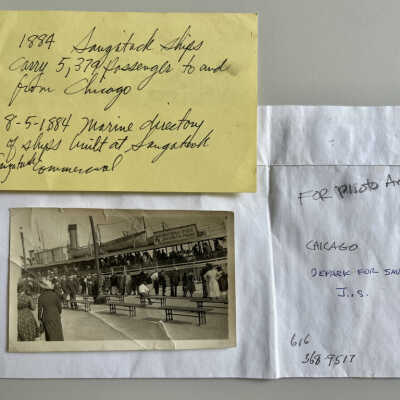 1884 Saugatuck Ships
carry 5,379 passenger to and
from Chicago
8-5-1884 Marine directory
of ships built at Saugatuck
Commercial
FOR PHOTO
CHICAGO
DEPARK FOR
J..S.
616
368-9517